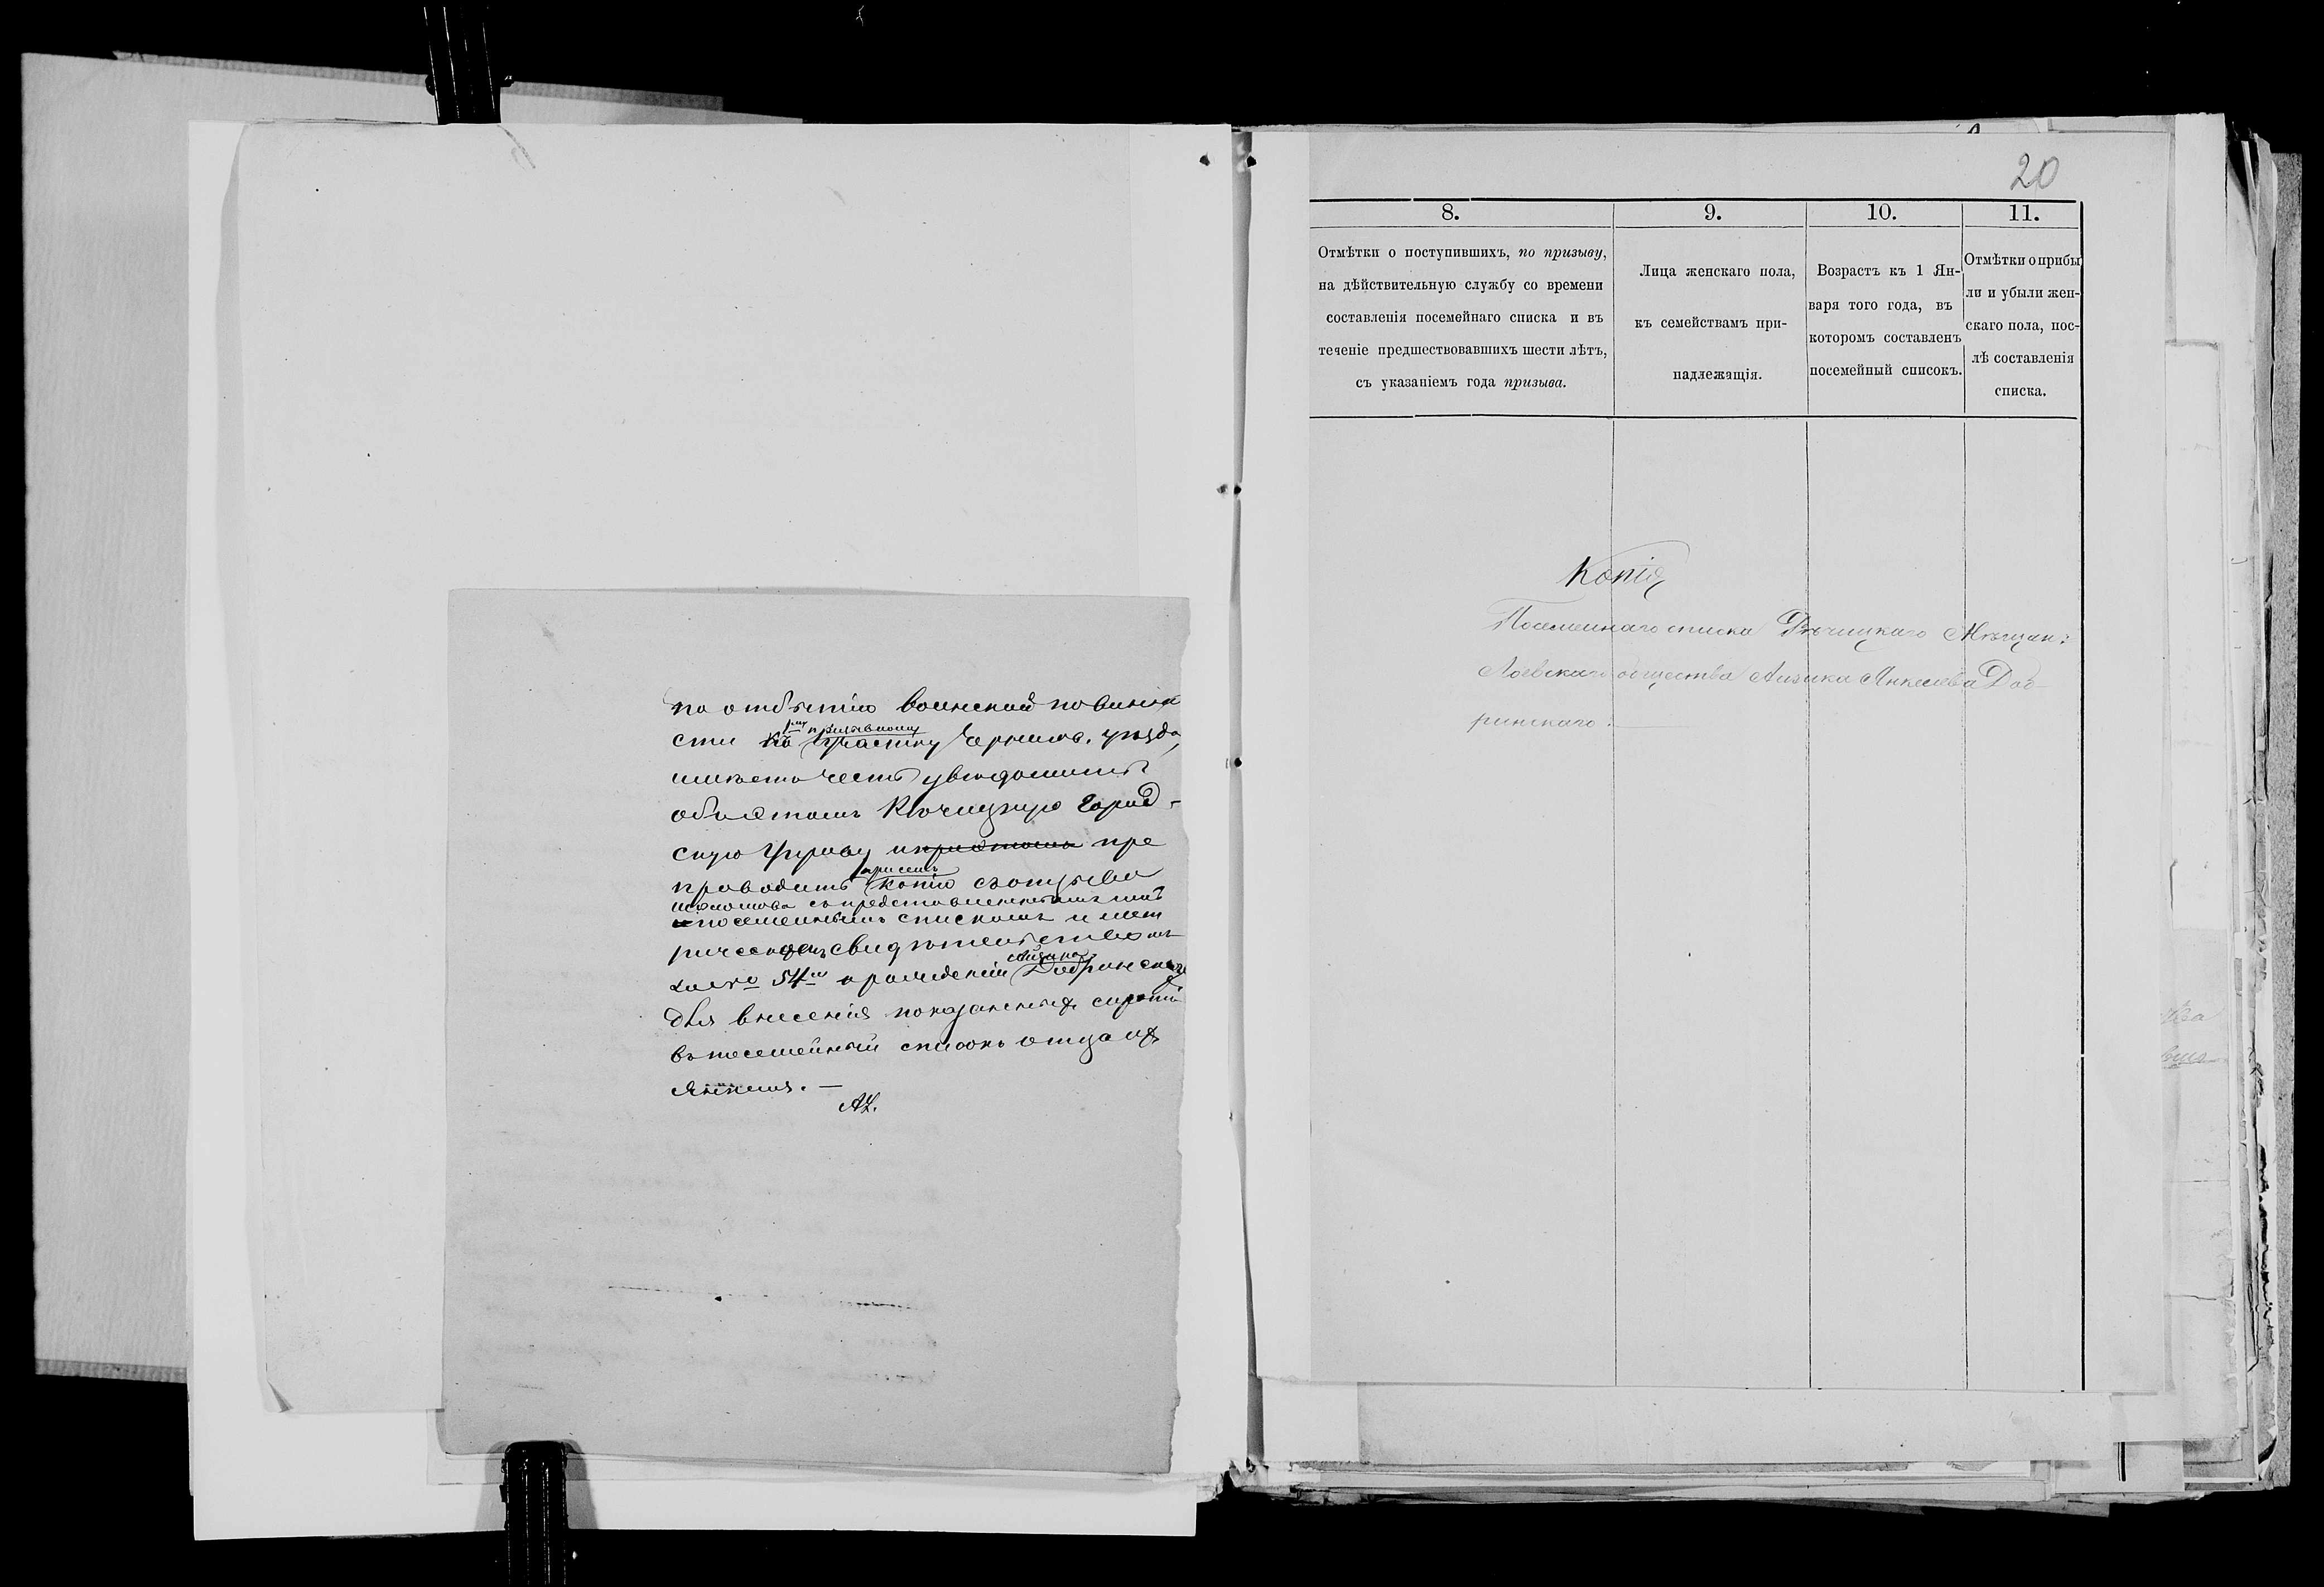 по отбытію воинской повинно
1му призывному
сти по участку Черниг. уезда,
имѣетъ честь увѣдомить
объ этомъ Рѣчицкую Город-
скую Управу и при этомъ пре
при семъ
проводить копію съ отзыва
съ представленнымъ имъ
посемейнымъ спискомъ и мет
рическимъ свидѣтельствомъ
54 о рожденіи Добринскаго
Айзика
для внесенія показанныхъ
въ посемейный списокъ отца ихъ
Янкеля. —
20
8.
9.
10.
11.
Отмѣтки о поступившихъ, по призыву,
на дѣйствительную службу со времени
составленія посемейнаго списка и въ
теченіе предшествовавшихъ шести лѣтъ,
съ указаніемъ года призыва.
Лица женскаго пола,
къ семействамъ при-
надлежащія.
Возрастъ къ 1 Ян-
варя того года, въ
которомъ составленъ
посемейный списокъ.
Отмѣтки о прибы
ли и убыли жен-
скаго пола, пос-
лѣ составленія
списка.
Копія
Посемейнаго списка Рѣчицкаго Мѣщан:
Лоевскаго общества Айзика Янкелева Доб-
ринскаго: